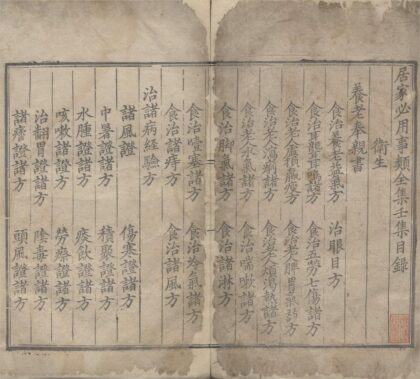 居家必用事類全集壬集目錄
衛生
養老奉親書
食治養老益氣方　治眼目方
食治耳聾耳鳴諸方　食治五勞七傷諸方
食治老人虛損羸瘦方　食治老人脾胃氣弱方
食治老人瀉痢諸方　食治老人煩渴熱諸方
食治老人水氣諸方　食治喘嗽諸方
食治脚氣諸方　食治諸淋方
食治噎塞諸方　食治冷氣諸方
食治諸痔方　食治諸風方
治諸病經驗方
諸風證　傷寒證諸方
中暑證諸方　積聚證諸方
水腫證諸方　痰飲證諸方
咳嗽證諸方　勞瘵證諸方
治翻胃證諸方　陰毒證諸方
證諸方　頭風證諸方